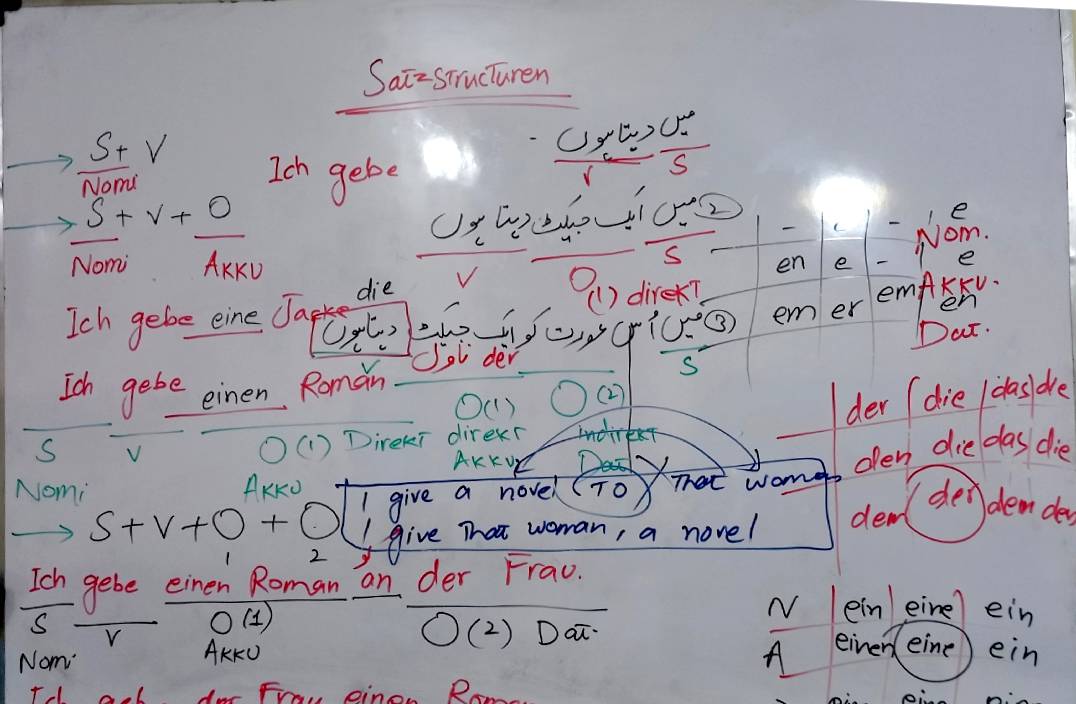 Satzstructuren
S + V
Nomi
Ich gebe
میں دیتا ہوں
V S
S + V + O
Nomi AKKU
② میں ایک جیکٹ دیتا ہوں
V O S
(1) direkt
Ich gebe eine Jacke
die
③ میں اُس عورت کو ایک جیکٹ دیتا ہوں
V ناول der S
Ich gebe einen Roman
S V O(1) Direkt
Nomi AKKU
O(1) O(2)
direkt indirekt
AKKU Dat
S + V + O + O
1 2
I give a novel (TO) That woman
I give That woman, a novel
Ich gebe einen Roman an der Frau.
S V O(1) O(2) Dat.
Nomi AKKU
- - - e
Nom.
en e - e
AKKU.
em er em en
Dat.
der die das die
den die das die
dem der dem den
N ein eine ein
A einen eine ein
Ich geb der Frau einen Roman